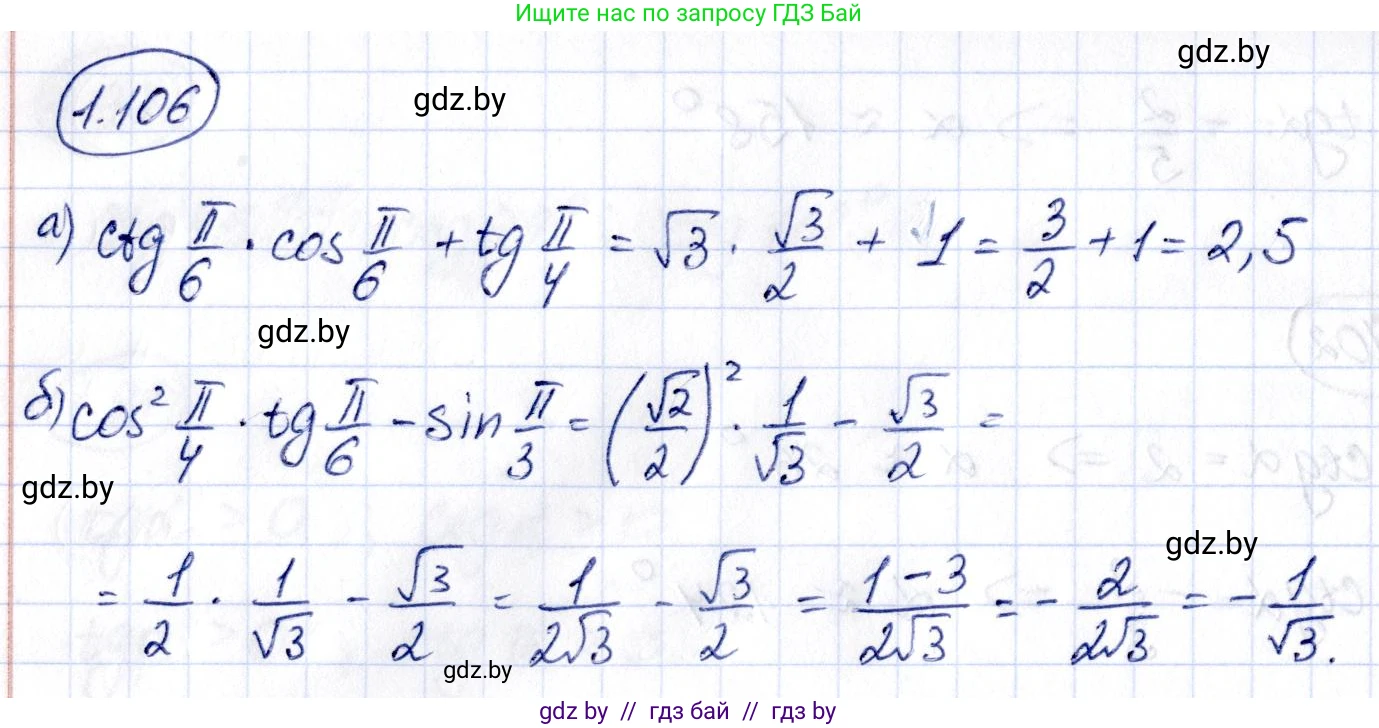 Ищите нас по запросу ГДЗ Бай
gdz.by
1.106
gdz.by
а) ctg π/6 · cos π/6 + tg π/4 = √3 · √3/2 + 1 = 3/2 + 1 = 2,5
gdz.by
б) cos² π/4 · tg π/6 - sin π/3 = (√2/2)² · 1/√3 - √3/2 =
gdz.by
gdz.by
= 1/2 · 1/√3 - √3/2 = 1/2√3 - √3/2 = 1-3/2√3 = - 2/2√3 = - 1/√3.
gdz.by
gdz by // гдз бай // гдз by